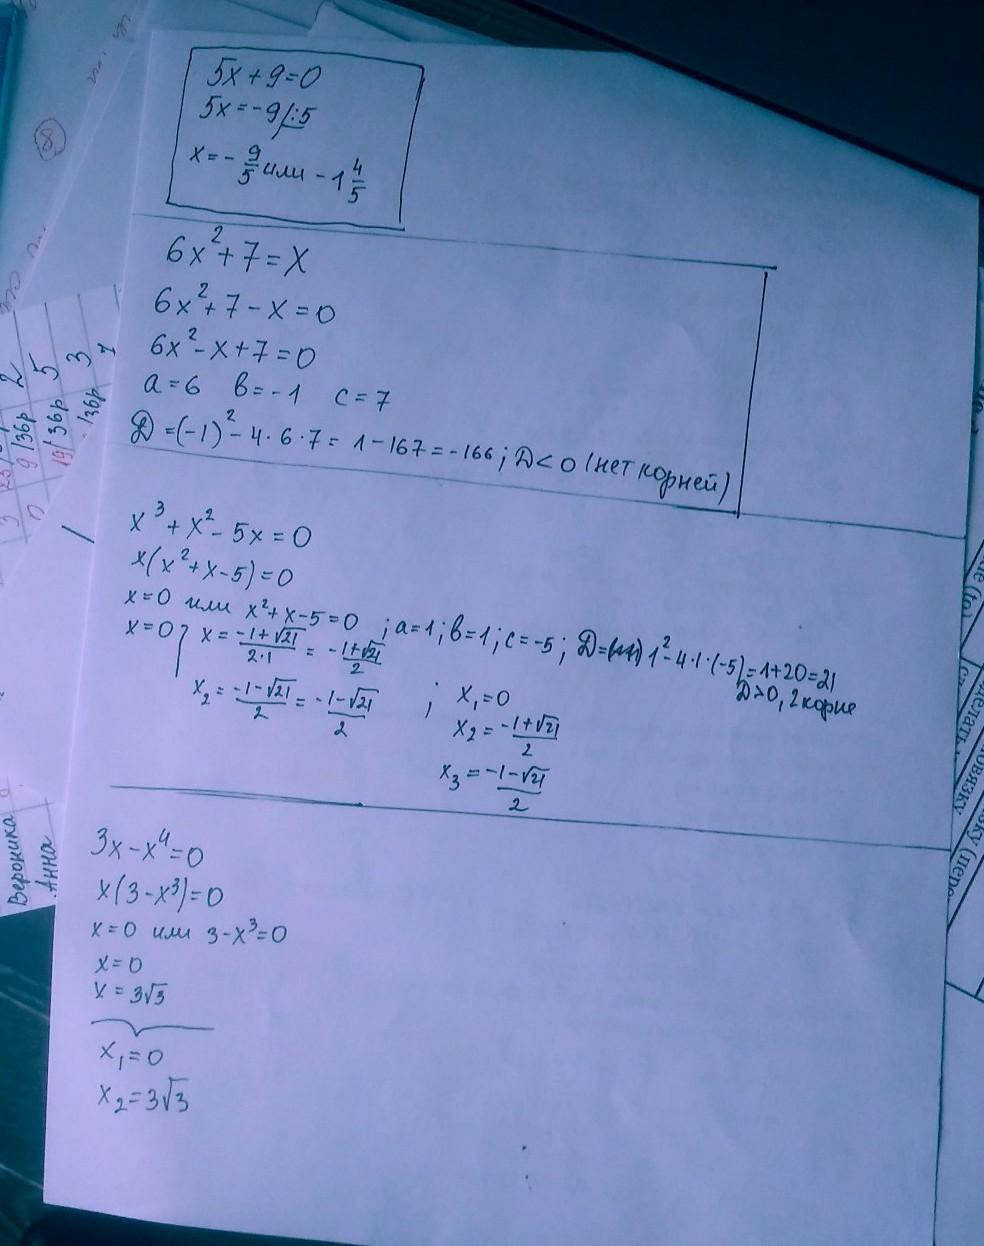 5x+9=0
5x=-9/:5
x=-9/5 или -1 4/5
6x²+7=x
6x²+7-x=0
6x²-x+7=0
a=6 в=-1 c=7
D=(-1)²-4·6·7=1-167=-166; D<0 (нет корней)
x³+x²-5x=0
x(x²+x-5)=0
x=0 или x²+x-5=0 ; a=1; в=1; c=-5; D= 1²-4·1·(-5)=1+20=21
D>0, 2 корне
x=0 x=(-1+√21)/(2·1)=-(1+√21)/2
x₂=(-1-√21)/2=(-1-√21)/2 ; x₁=0
x₂=(-1+√21)/2
x₃=(-1-√21)/2
3x-x⁴=0
x(3-x³)=0
x=0 или 3-x³=0
x=0
x=3√3
x₁=0
x₂=3√3
8
2
9/36р 5
19/36р 3
Вероника
Анна